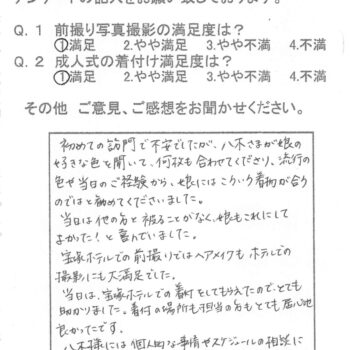 Q.1 前撮り写真撮影の満足度は？
①満足 2.やや満足 3.やや不満 4.不満
Q.2 成人式の着付け満足度は？
①満足 2.やや満足 3.やや不満 4.不満
その他 ご意見、ご感想をお聞かせください。
初めての訪問で不安でしたが、八木さまが娘の
好きな色を聞いて、何枚も合わせてくださり、流行の
色や当日のご経験から、娘にはこういう着物が合う
のではと勧めてくださいました。
当日は他の方と被ることがなく、娘もこれにして
よかった！と喜んでいました。
宝塚ホテルでの前撮りではヘアメイクも ホテルでの
撮影にも大満足でした。
当日は、宝塚ホテルでの着付をしてもらえたので、とても
助かりました。着付の場所も担当の方もとても居心地
良かったです。
八木様には個人的な事情やスケジュールの相談に